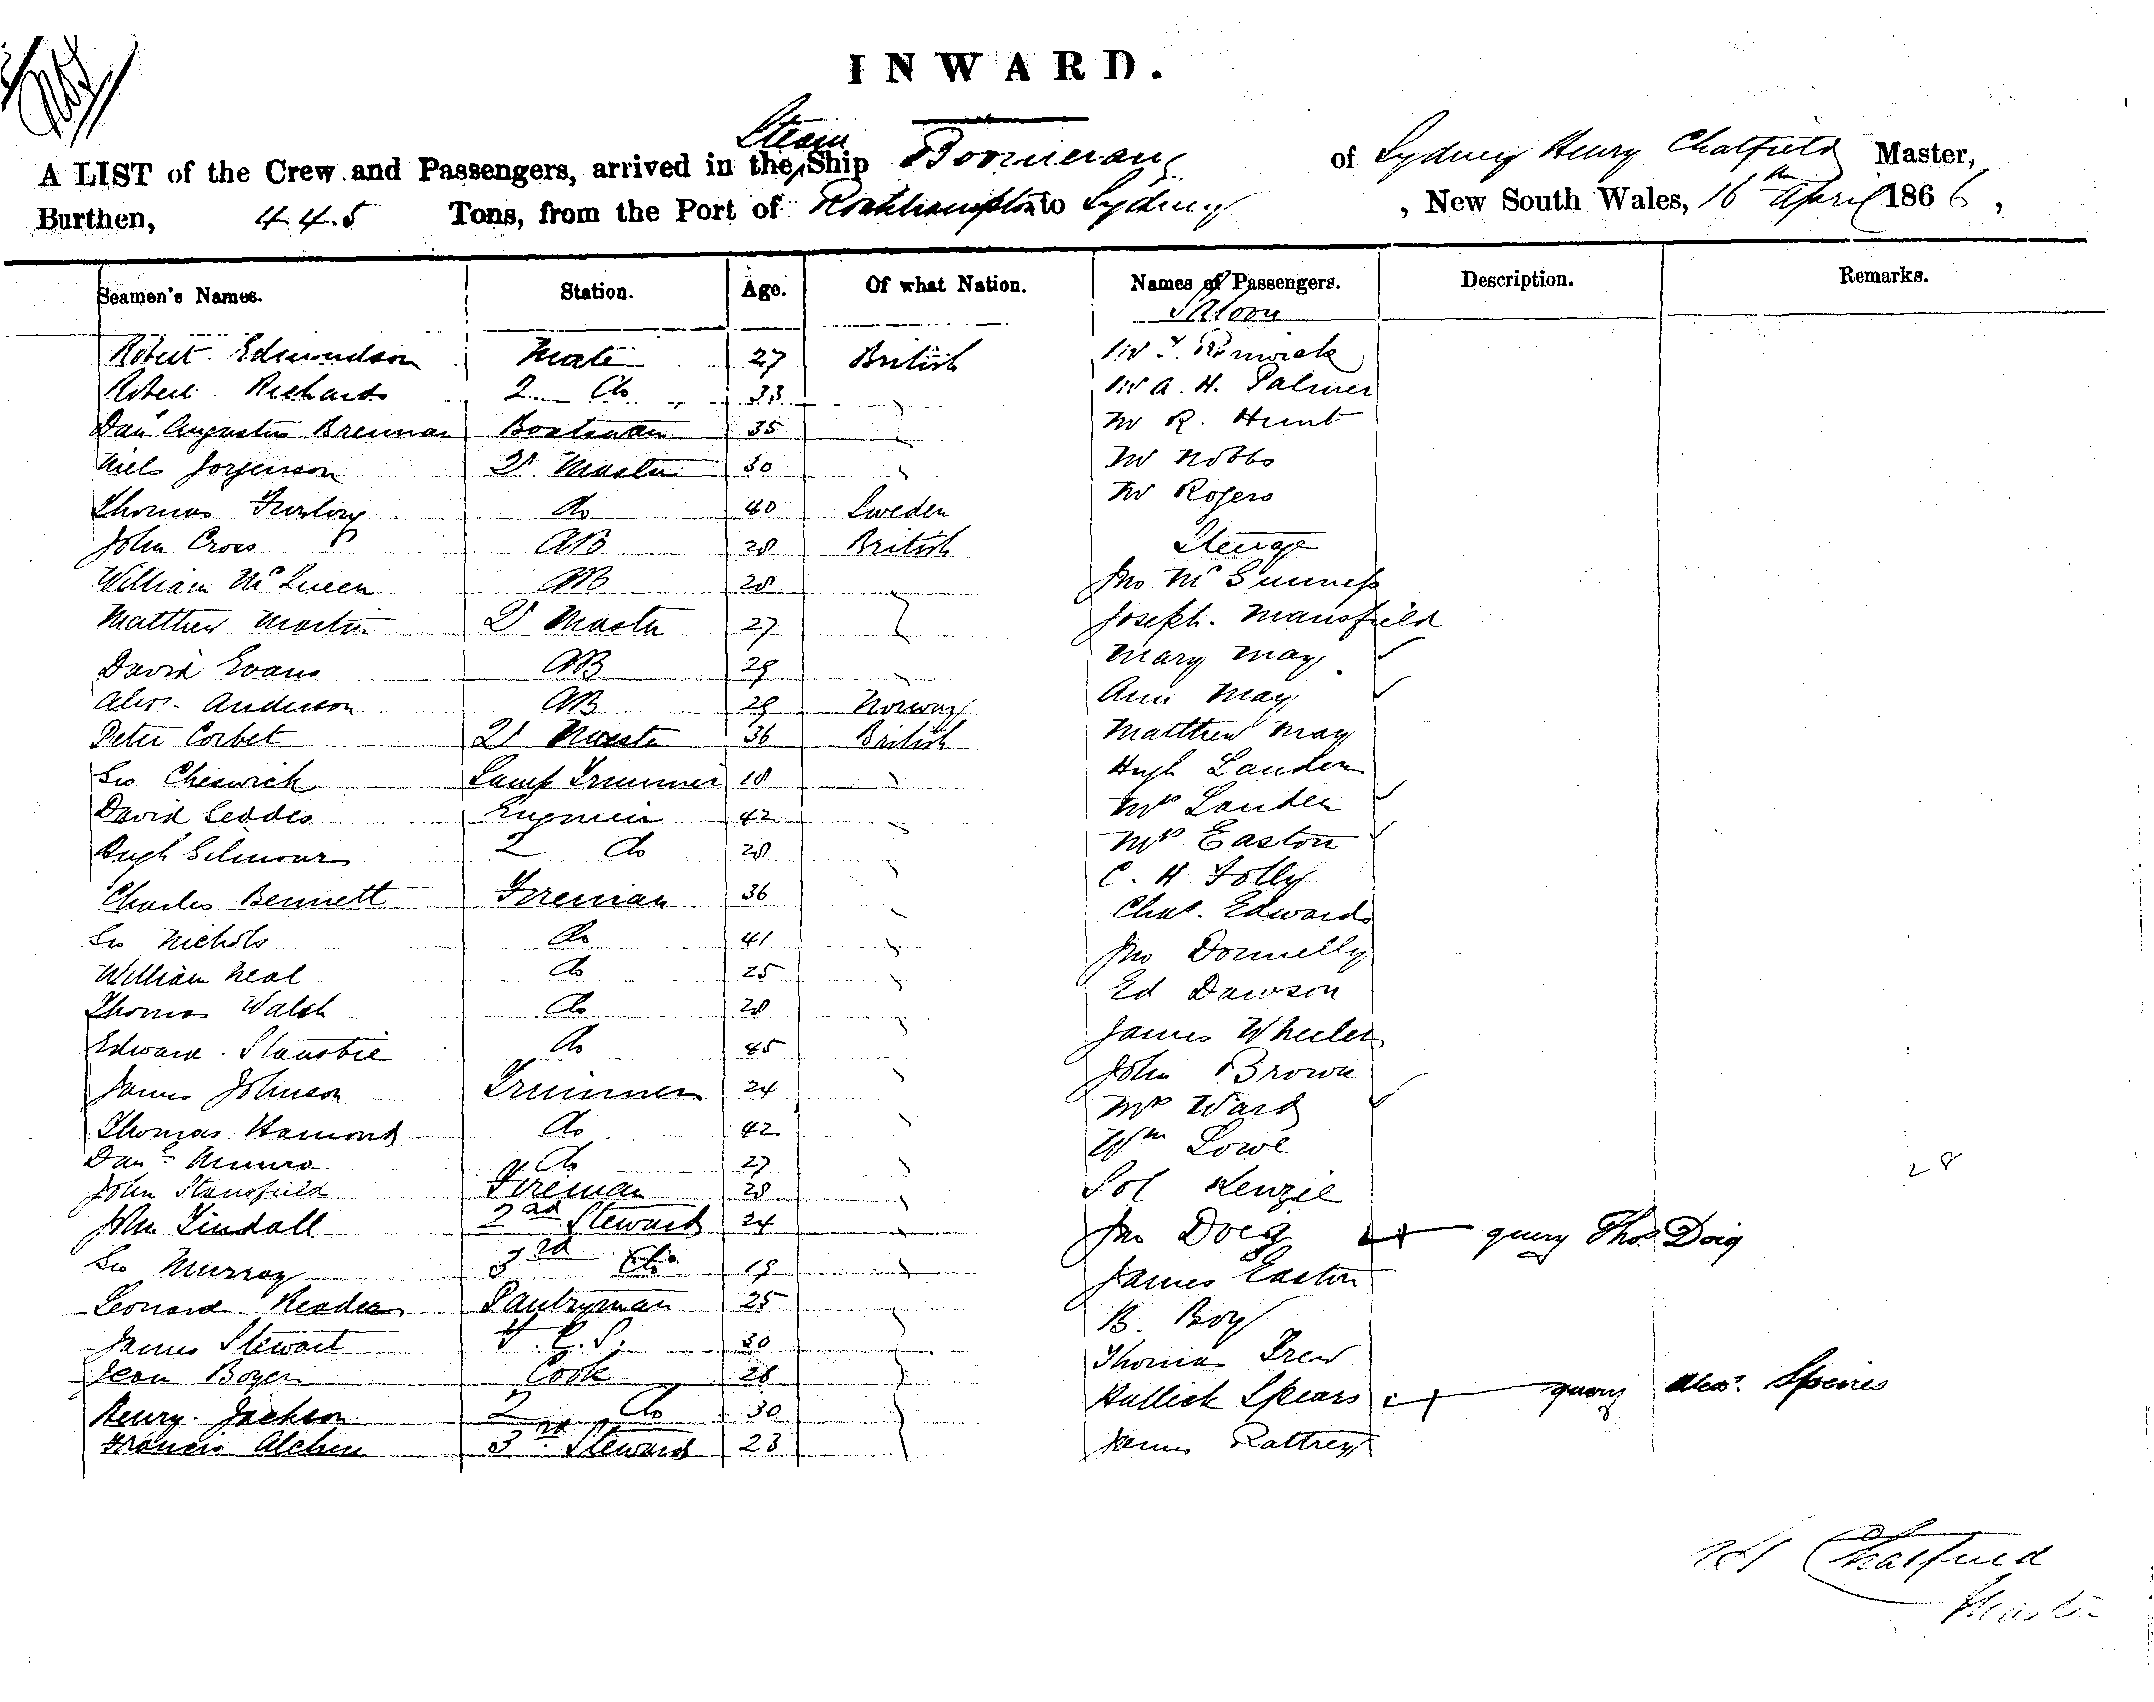 INWARD.
A LIST of the Crew and Passengers, arrived in the Steam Ship Boomerang of Sydney Henry Chatfield Master,
Burthen, 445 Tons, from the Port of Rockhampton to Sydney, New South Wales, 16th April 1866,
Seamen's Names. Station. Age. Of what Nation. Names of Passengers. Description. Remarks.
Saloon
Robert Edmundson Mate 27 British Mr Renwick
Robert Richards 2 Do 33 " Mr A. H. Palmer
Danl Augustus Brennan Boatswain 35 " Mr R. Hunt
Niels Jorgenson Qr Master 30 " Mr Nobbs
Thomas do 40 Sweden Mr Rogers
John Cross AB 28 British Steerage
William McQueen AB 28 " Jno McGuiness
Matthew Martin Qr Master 27 " Joseph Mansfield
David Evans AB 29 " Mary May
Alexr Anderson AB 29 Norway Ann May
Peter Corbet Qr Master 36 British Matthew May
Geo Cheswick Lamp Trimmer 18 " Hugh Lauder
David Geddes Engineer 42 " Mrs Lauder
Hugh Gilmour 2 do 28 " Mrs Easton
Charles Bennett Foreman 36 " C. H. Folly
Geo Nichols do 41 " Chas. Edwards
William Neal do 25 " Jno Donnelly
Thomas Walsh do 28 " Ed Dawson
Edward Stansbie do 45 " James Wheeler
James Johnson Trimmer 24 " John Brown
Thomas Hamond do 42 " Mrs Ward
Danl Munro do 27 " Wm Lowe
John Stansfield Fireman 28 " Sol Kenzie 28
John Tindall 2nd Steward 24 " Jno Doeg query Thos Doig
Geo Murray 3rd do 19 " James Easton
Leonard Reader Pantryman 25 " B. Boy
James Stewart F. C. S. 30 " Thomas Trew
Jean Boyer Cook 26 " Hullick Spears query Alexr. Speires
Henry Jackson 2 do 30 " James Rattrey
Francis 3rd Steward 23 "
Chatfield
Master